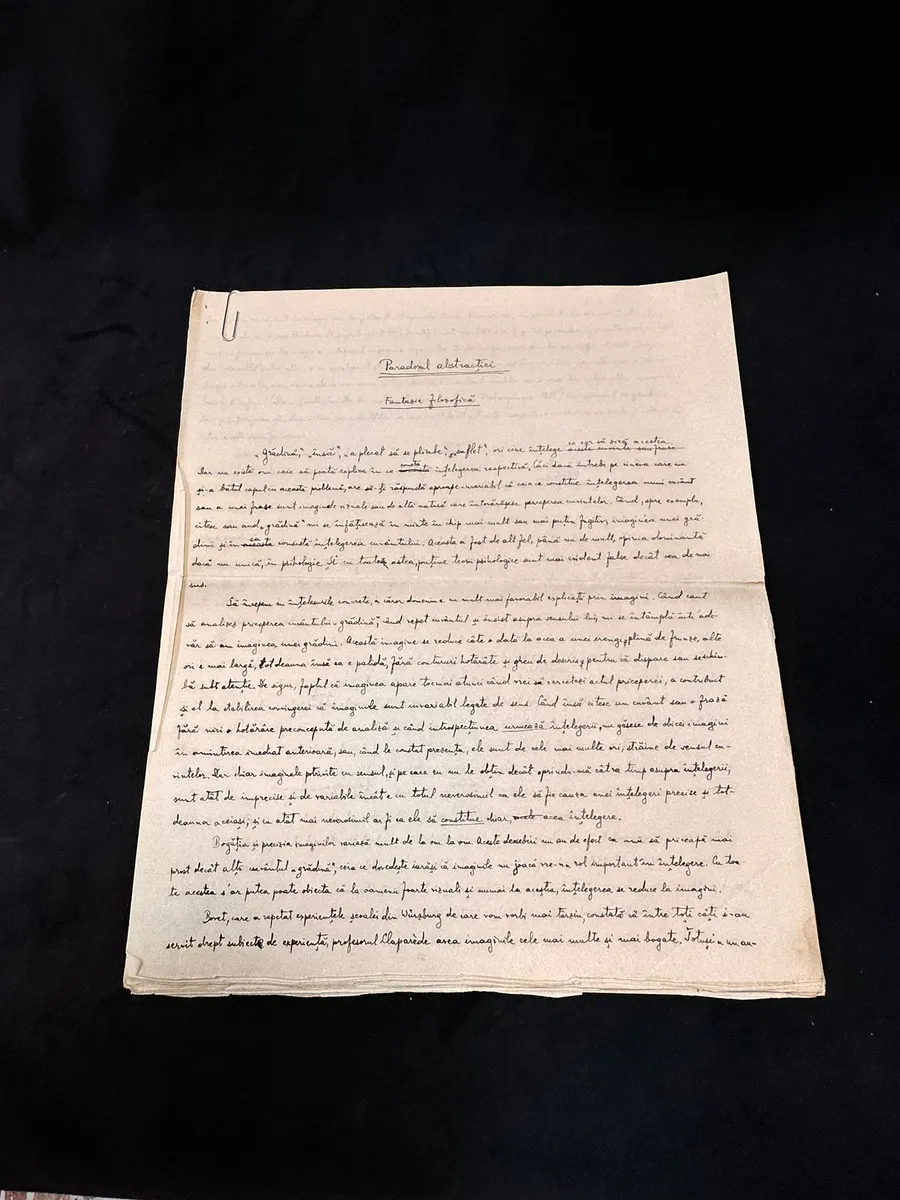 Paradoxul abstracției
Fantazie filozofică
„Grădină," „însă", „a plecat să se plimbe", „suflet", ori cine înțelege ce vor să zică acestea
Dar nu este om care să poată explica în ce constă înțelegerea respectivă. Căci dacă întrebi pe cineva care nu
și-a bătut capul cu această problemă, are să-ți răspundă aproape invariabil că ceia ce constitue înțelegerea unui cuvânt
sau a unei fraze sunt imaginile vizuale sau de altă natură care întovărășesc perceperea cuvintelor. Când, spre exemplu,
citesc sau aud „grădină" mi se înfățișează în minte în chip mai mult sau mai puțin fugitiv, imaginea unei gră-
dini și în asta consistă înțelegerea cuvântului. Aceasta a fost de alt fel, până nu de mult, opinia dominantă
dacă nu unică, în psihologie. Și cu toate astea, puține teorii psihologice sunt mai evident false decât cea de mai
sus.
Să începem cu înțelesurile concrete, a căror domeniu e cu mult mai favorabil explicației prin imagini. Când caut
să analizez priceperea cuvântului „grădină", când repet cuvântul și insist asupra sensului lui, mi se întâmplă într'ade-
văr să am imaginea unei grădini. Această imagine se reduce câte o dată la acea a unei crengi plină de frunze, alte
ori e mai largă, totdeauna însă ea e palidă, fără conture hotărâte și greu de descris, pentru că dispare sau se schim-
bă subt atenție. De sigur, faptul că imaginea apare tocmai atunci când vrei să cercetezi actul priceperei, a contribuit
și el la stabilirea convingerei că imaginile sunt invariabil legate de sens. Când însă citesc un cuvânt sau o frază
fără nici o hotărâre preconcepută de analiză și când introspecțiunea urmează înțelegerii, nu găsesc de obicei imagini
în amintirea imediat anterioară, sau, când le constat prezența, ele sunt de cele mai multe ori, străine de sensul cu-
vintelor. Dar chiar imaginele potrivite cu sensul, și pe care eu nu le obțin decât oprindu-mă câtva timp asupra înțelegerii,
sunt atât de imprecise și de variabile încât e cu totul neverosimil ca ele să fie cauza unei înțelegeri precise și tot-
deauna aceiași; și cu atât mai neverosimil ar fi ca ele să constitue chiar, acea înțelegere.
Bogăția și precizia imaginilor variază mult de la om la om. Aceste deosebiri nu au de efect ca unii să priceapă mai
prost decât alții cuvântul „grădină", ceia ce dovedește iarăși că imaginile nu joacă vre-un rol important în înțelegere. Cu toa-
te acestea s'ar putea poate obiecta că la oamenii foarte vizuali și numai la aceștia, înțelegerea se reduce la imagini.
Bovet, care a repetat experiențele școalei din Würzburg de care vom vorbi mai târziu, constată că între toți câți i-au
servit drept subiecte de experiență, profesorul Claparède avea imaginile cele mai multe și mai bogate. Totuși